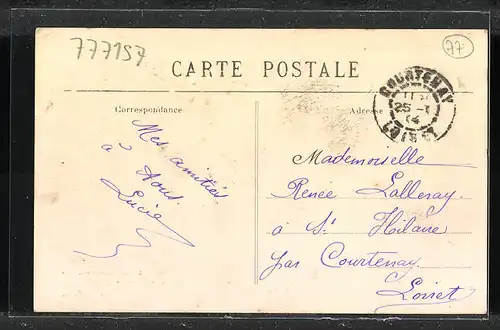 777157
77
CARTE POSTALE
Correspondance
Adresse
COURTENAY
25 -
LOIRET
Mes amitiés
à tous.
Lucie
Mademoiselle
Renée Lalleray
à St Hilaire
par Courtenay
Loiret